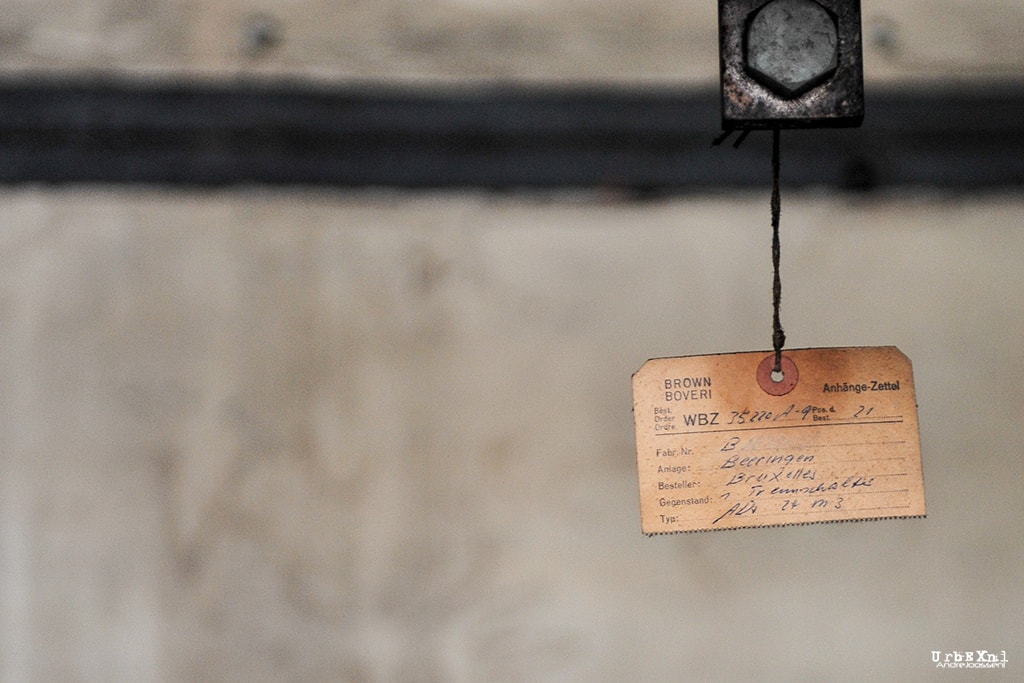 BROWN
BOVERI
Anhänge-Zettel
Best.
Order
Ordre
WBZ 35220A-9 Pos. d. Best. 21
Fabr. Nr. B
Anlage: Beeringen
Besteller: Bruxelles
Gegenstand: 1 Trennschalter
Typ: 24 m 3
UrbEXnl
AndreJoosseni